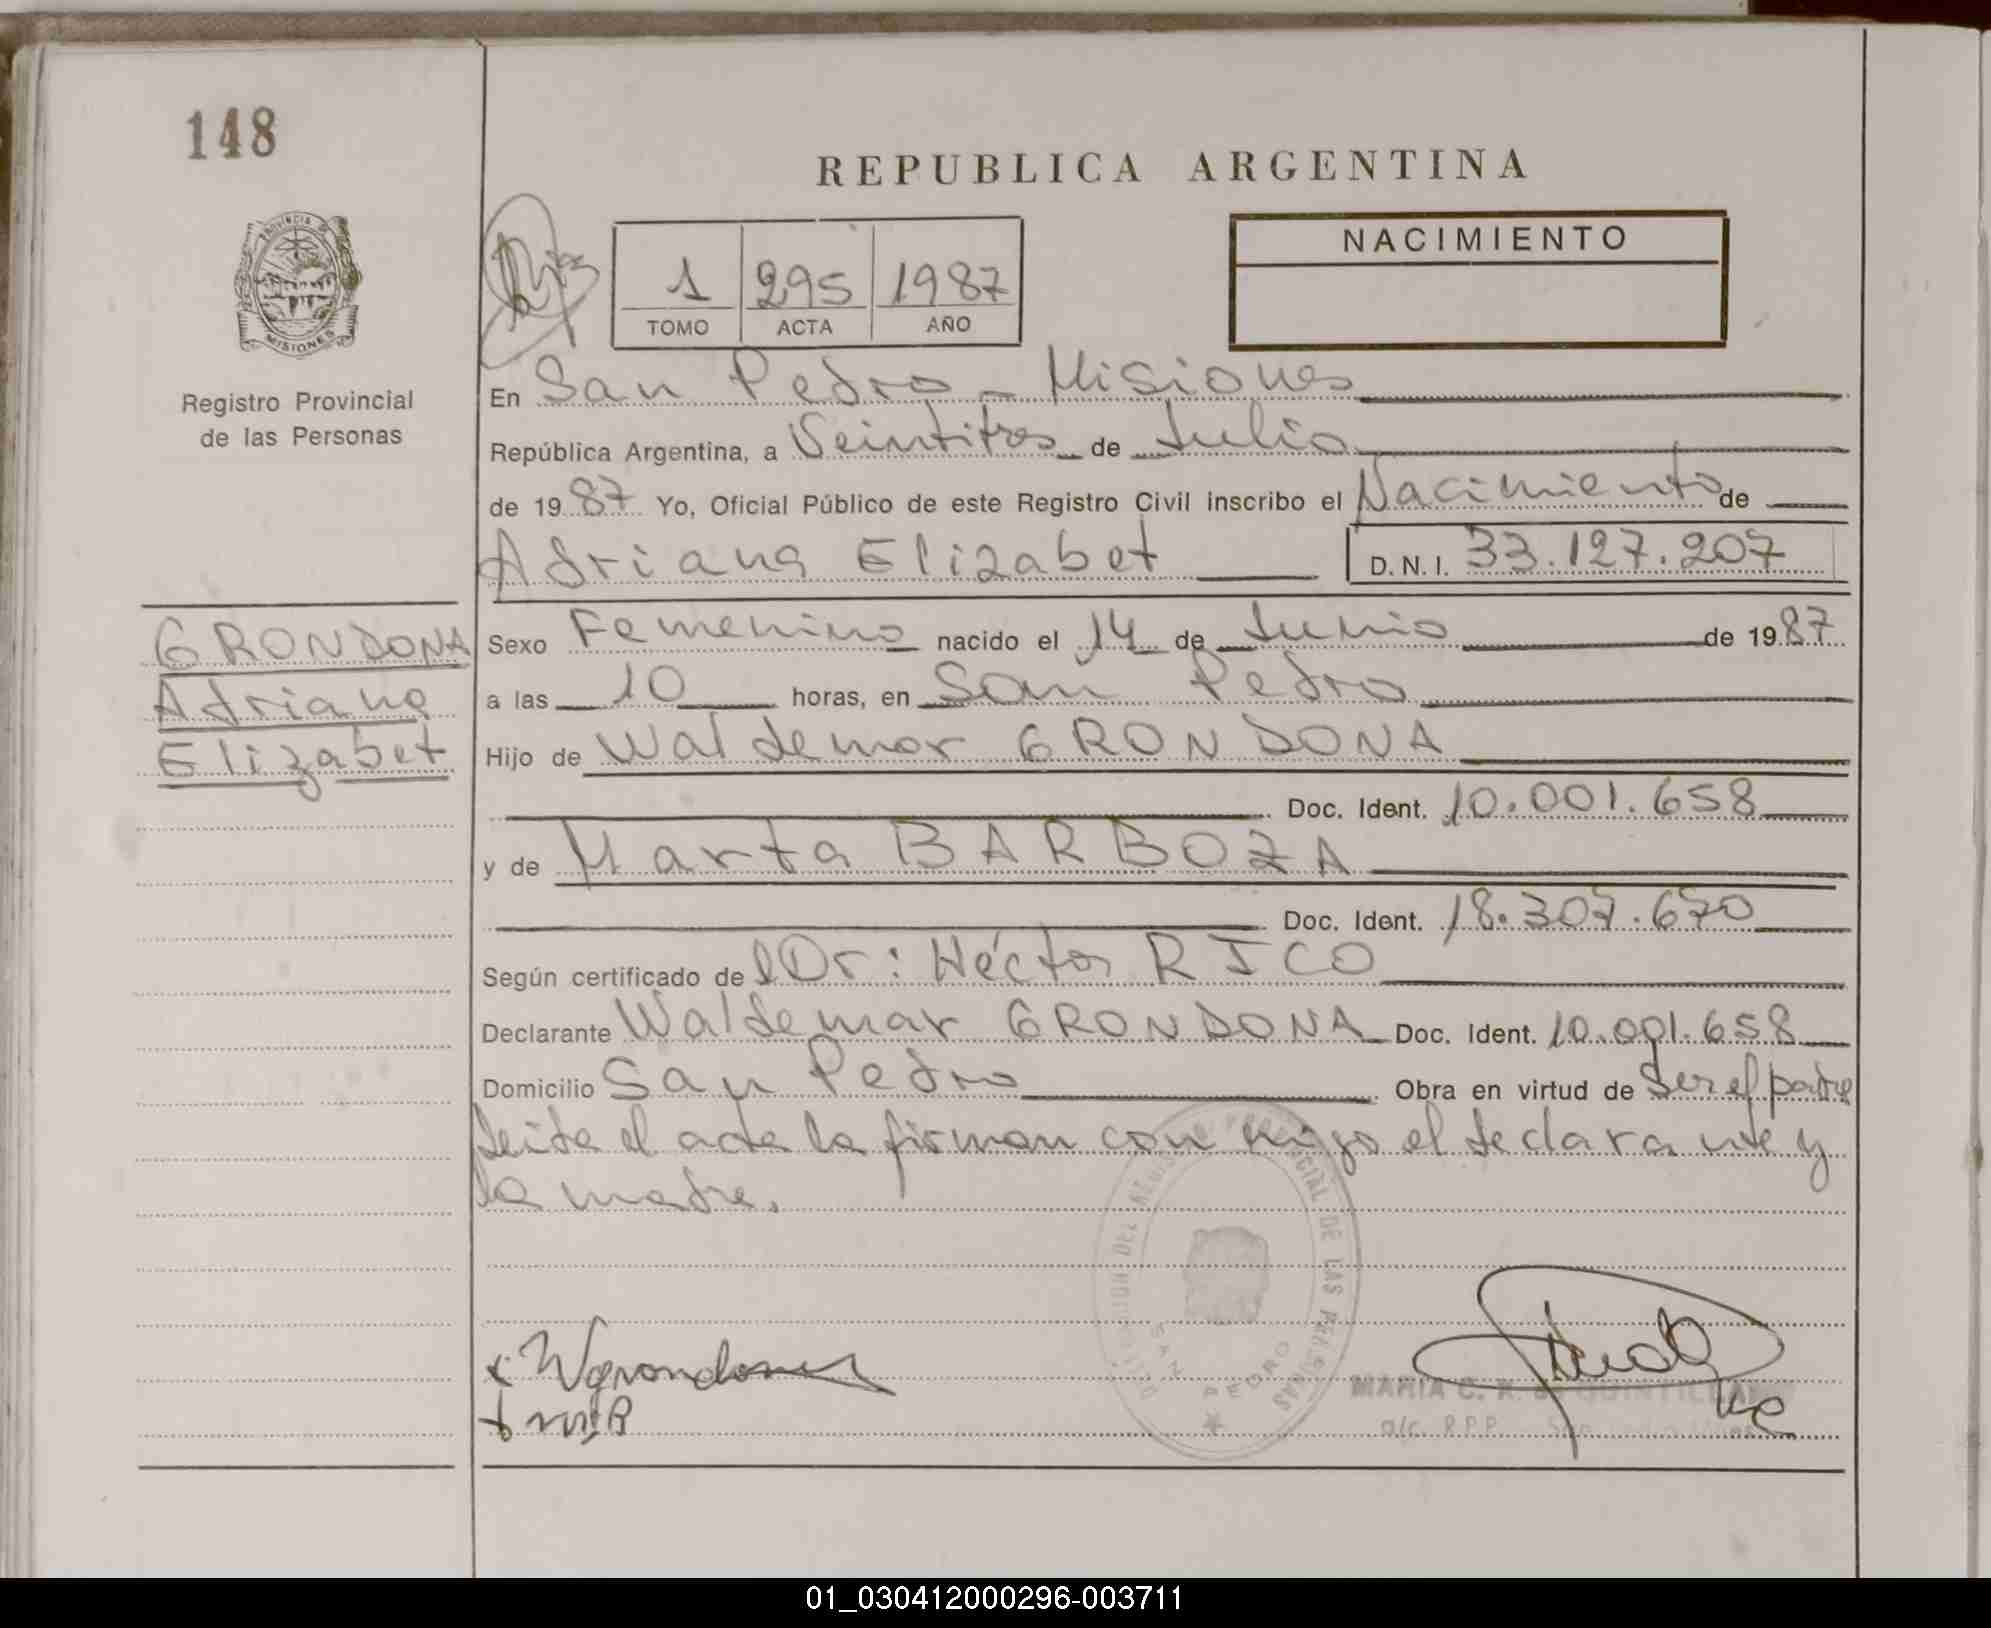 148
REPUBLICA ARGENTINA
1 295 1987
TOMO ACTA AÑO
NACIMIENTO
PROVINCIA DE
MISIONES
Registro Provincial
de las Personas
En San Pedro - Misiones
República Argentina, a Veintitres de Julio
de 1987 Yo, Oficial Público de este Registro Civil inscribo el Nacimiento de
Adriana Elizabet D.N.I. 33.127.207
GRONDONA
Adriana
Elizabet
Sexo Femenino nacido el 14 de Junio de 1987
a las 10 horas, en San Pedro
Hijo de Waldemar GRONDONA
Doc. Ident. 10.001.658
y de Marta BARBOZA
Doc. Ident. 18.307.670
Según certificado del Dr: Héctor RICO
Declarante Waldemar GRONDONA Doc. Ident. 10.001.658
Domicilio San Pedro Obra en virtud de Ser el padre
Leida el acta la firman con migo el declarante y
la madre.
DELEGACION DEL REGISTRO PROVINCIAL DE LAS PERSONAS
SAN PEDRO
x Wgrondona
MARIA C. R. de QUINTILLAN
a/c. R.P.P.
01_030412000296-003711